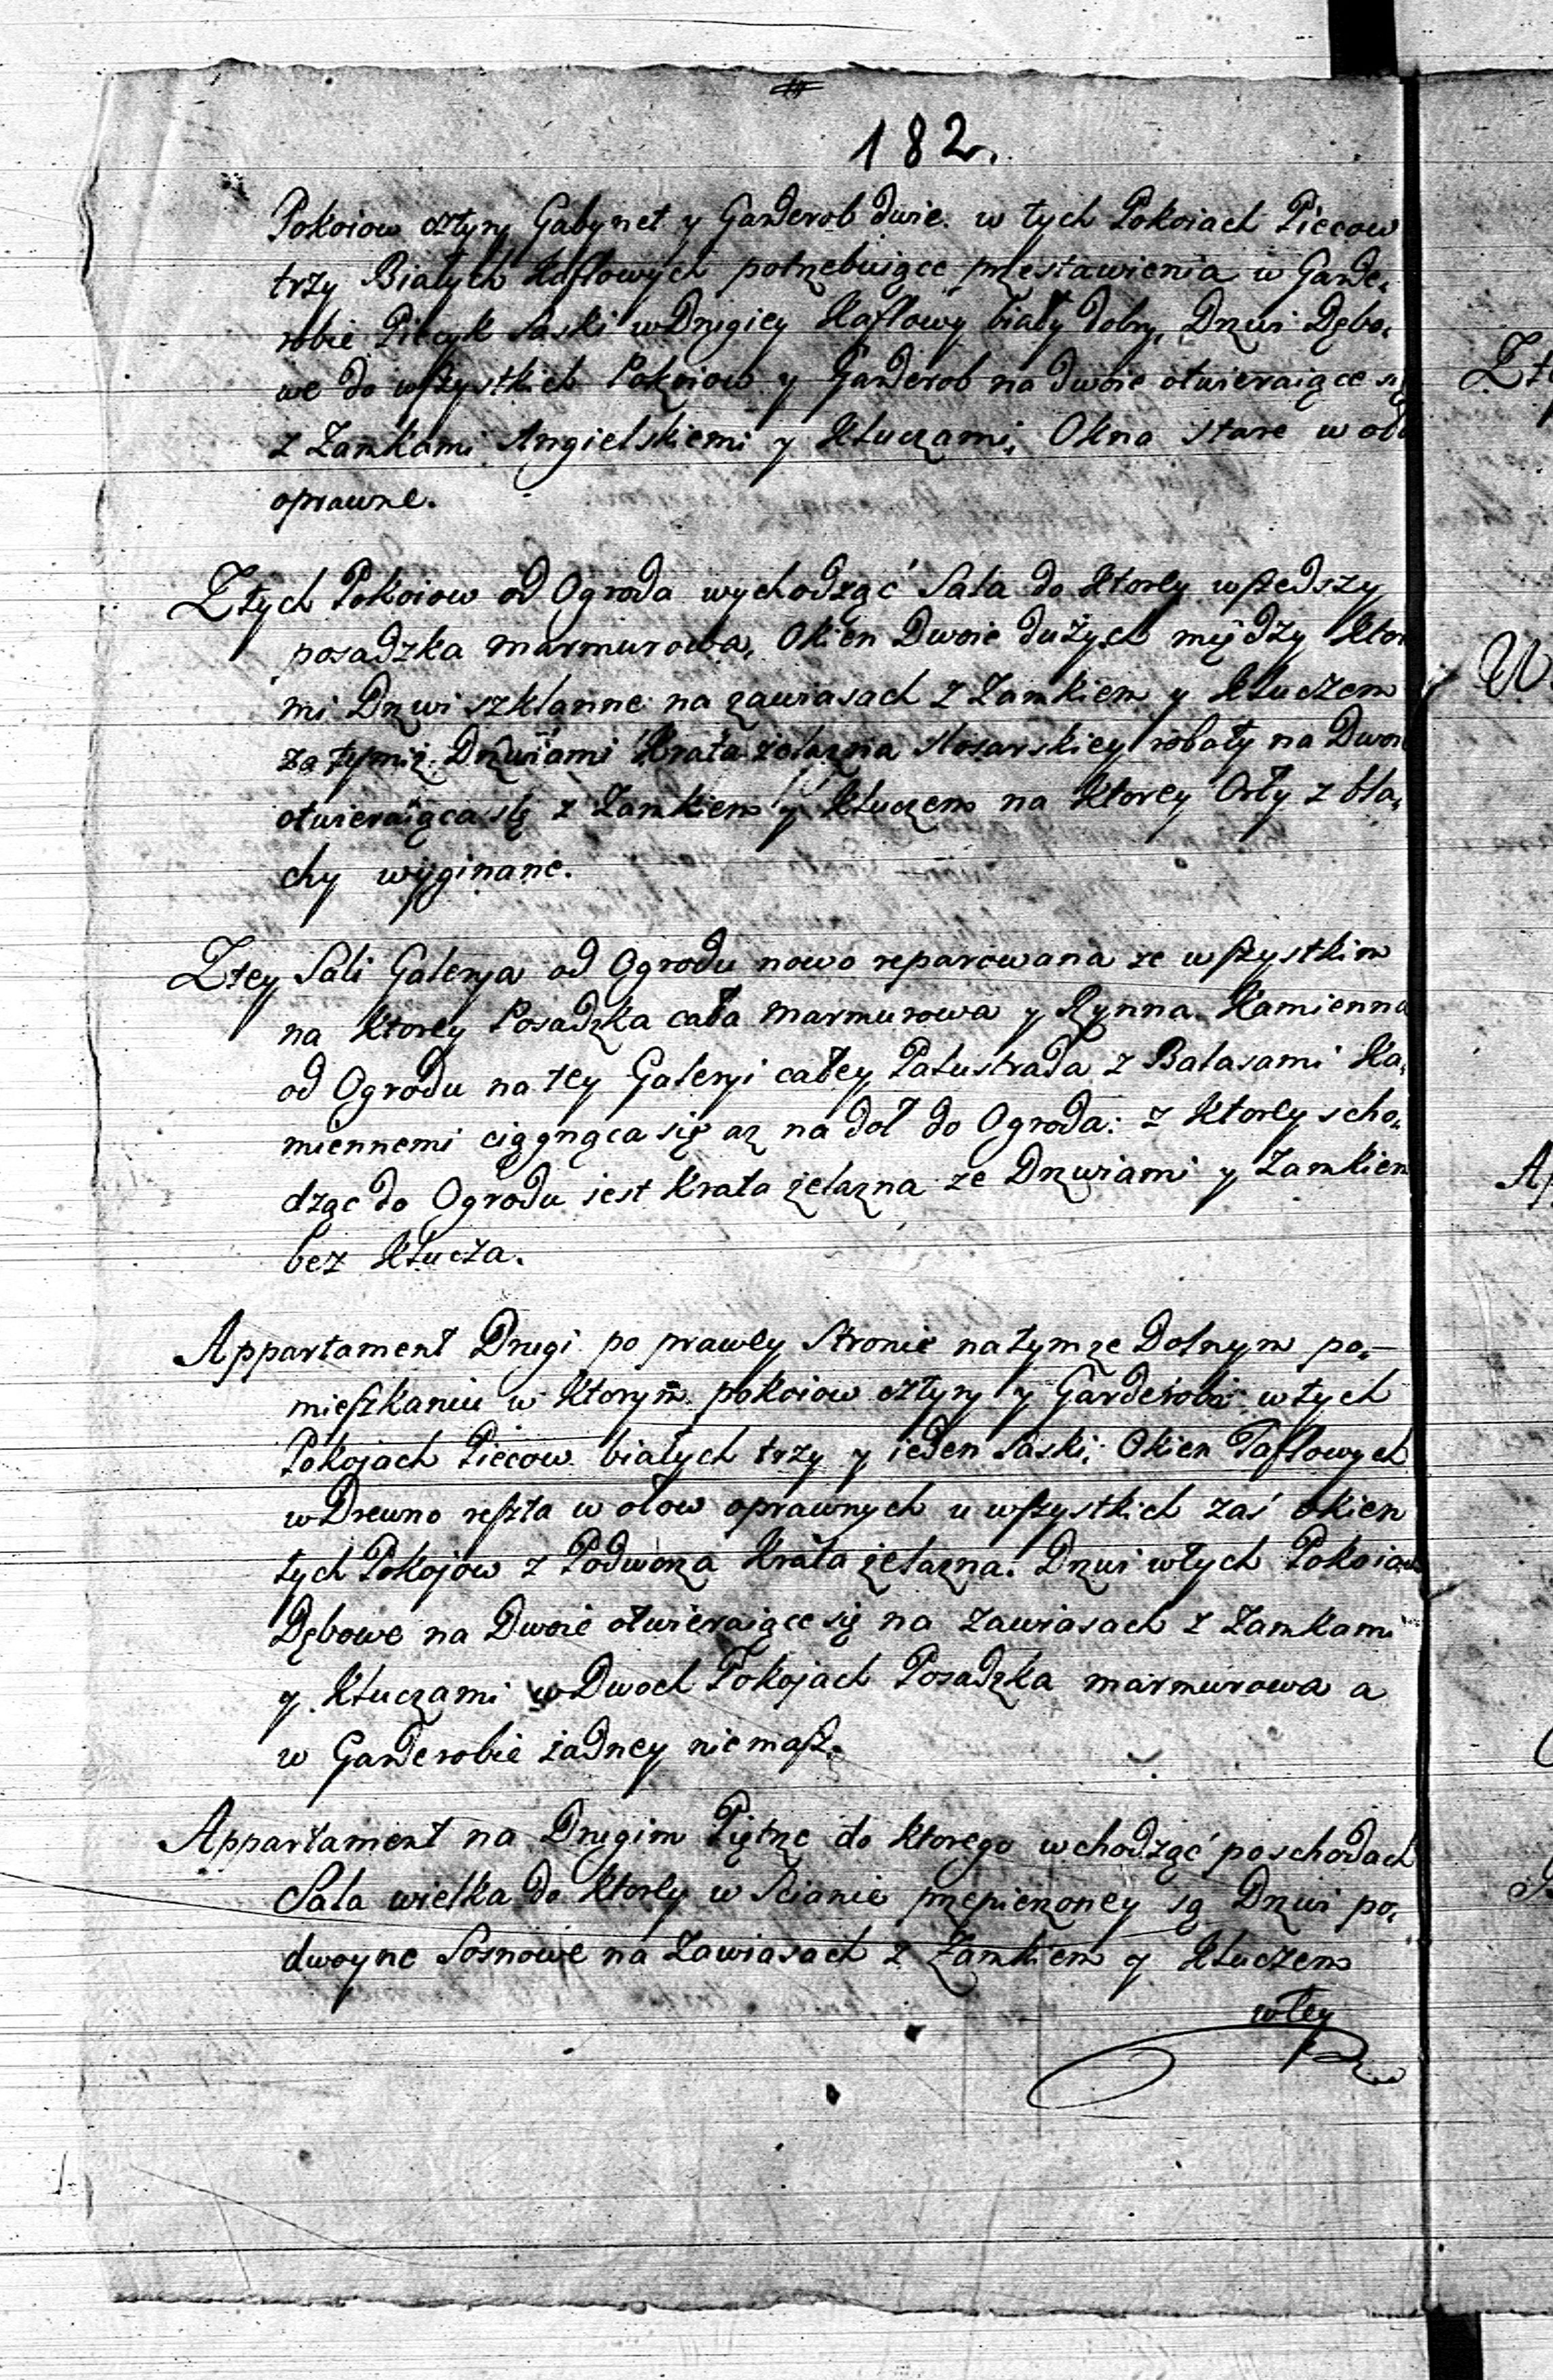 182.
Pokoiow cztyry Gabynet y Garderob dwie. w tych Pokoiach Piecow
trzy Białych Kaflowych potrzebuiące przestawienia w Garde,
robie Piecyk Saski w Drugiey Kaflowy biały dobry, Drzwi Dębo,
we do wszystkich Pokoiow y Garderob na dwoie otwieraiące się
z Zamkami Angielskiemi y Kluczami, Okna stare w
oprawne.
Z tych Pokoiow od Ogroda wychodząć Sala do Ktorey wszedszy
posadzka marmurowa, Okien Dwoie dużych między Ktor
mi Drzwi szklanne na zawiasach z Zamkiem y Kluczem
za tymiż Drzwiami Krata żelazna slosarskiey roboty na Dwoie
otwieraiąca się z Zamkiem y Kluczem na Ktorey Orły z bla,
chy wyginane.
Z tey Sali Galerya od Ogrodu nowo reparowana ze wszystkim
na Ktorey Posadzka cała marmurowa y Rynna Kamienna
od Ogrodu na tey Galeryi całey Palustrada z Balasami Ka,
miennemi ciągnąca się az na doł do Ogroda: z Ktorey scho,
dząc do Ogrodu iest Krata żelazna ze Drzwiami y Zamkiem
bez Klucza.
Appartament Drugi po prawey Stronie na tymże Dolnym po,
mieszkaniu w Ktorym pokoiow cztyry y Garderoba w tych
Pokojach Piecow białych trzy y ieden Saski; Okien Taflowych
w Drewno reszta w ołow oprawnych u wszystkich zaś okien
tych Pokojow z Podworza Krata żelazna. Drzwi w tych Pokoiach
Dębowe na Dwoie otwieraiące się na zawiasach z Zamkami
y Kluczami w Dwoch Pokojach Posadzka marmurowa a
w Garderobie żadney niemasz.
Appartament na Drugim Piętrze do Ktorego wchodząć po schodach
Sala wielka do Ktorey w Scianie przepierzoney są Drzwi po,
dwoyne Sosnowe na Zawiasach z Zamkiem y Kluczem
w tey